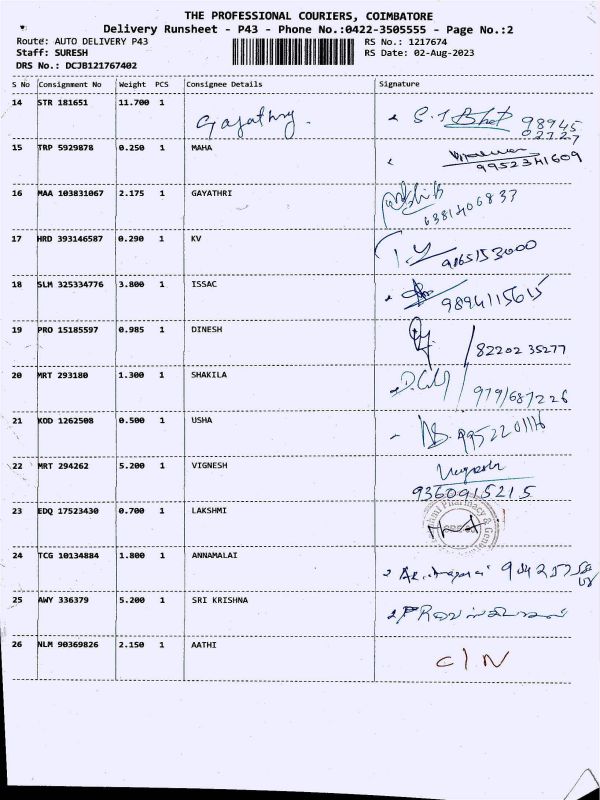 THE PROFESSIONAL COURIERS, COIMBATORE
Delivery Runsheet - P43 - Phone No.:0422-3505555 - Page No.:2
Route: AUTO DELIVERY P43
RS No.: 1217674
Staff: SURESH
RS Date: 02-Aug-2023
DRS No.: DCJB121767402
S No Consignment No Weight PCS Consignee Details Signature
14 STR 181651 11.700 1 Gayathry. 98945
02727
15 TRP 5929878 0.250 1 MAHA
9952341609
16 MAA 103831067 2.175 1 GAYATHRI
6381406837
17 HRD 393146587 0.290 1 KV 9865153000
18 SLM 325334776 3.800 1 ISSAC 9894115615
19 PRO 15185597 0.985 1 DINESH 82202 35277
20 MRT 293180 1.300 1 SHAKILA 9791687226
21 KOD 1262508 0.500 1 USHA 9952201116
22 MRT 294262 5.200 1 VIGNESH Vignesh
9360915215
23 EDQ 17523430 0.700 1 LAKSHMI
24 TCG 10134884 1.800 1 ANNAMALAI
25 AWY 336379 5.200 1 SRI KRISHNA
26 NLM 90369826 2.150 1 AATHI C/N